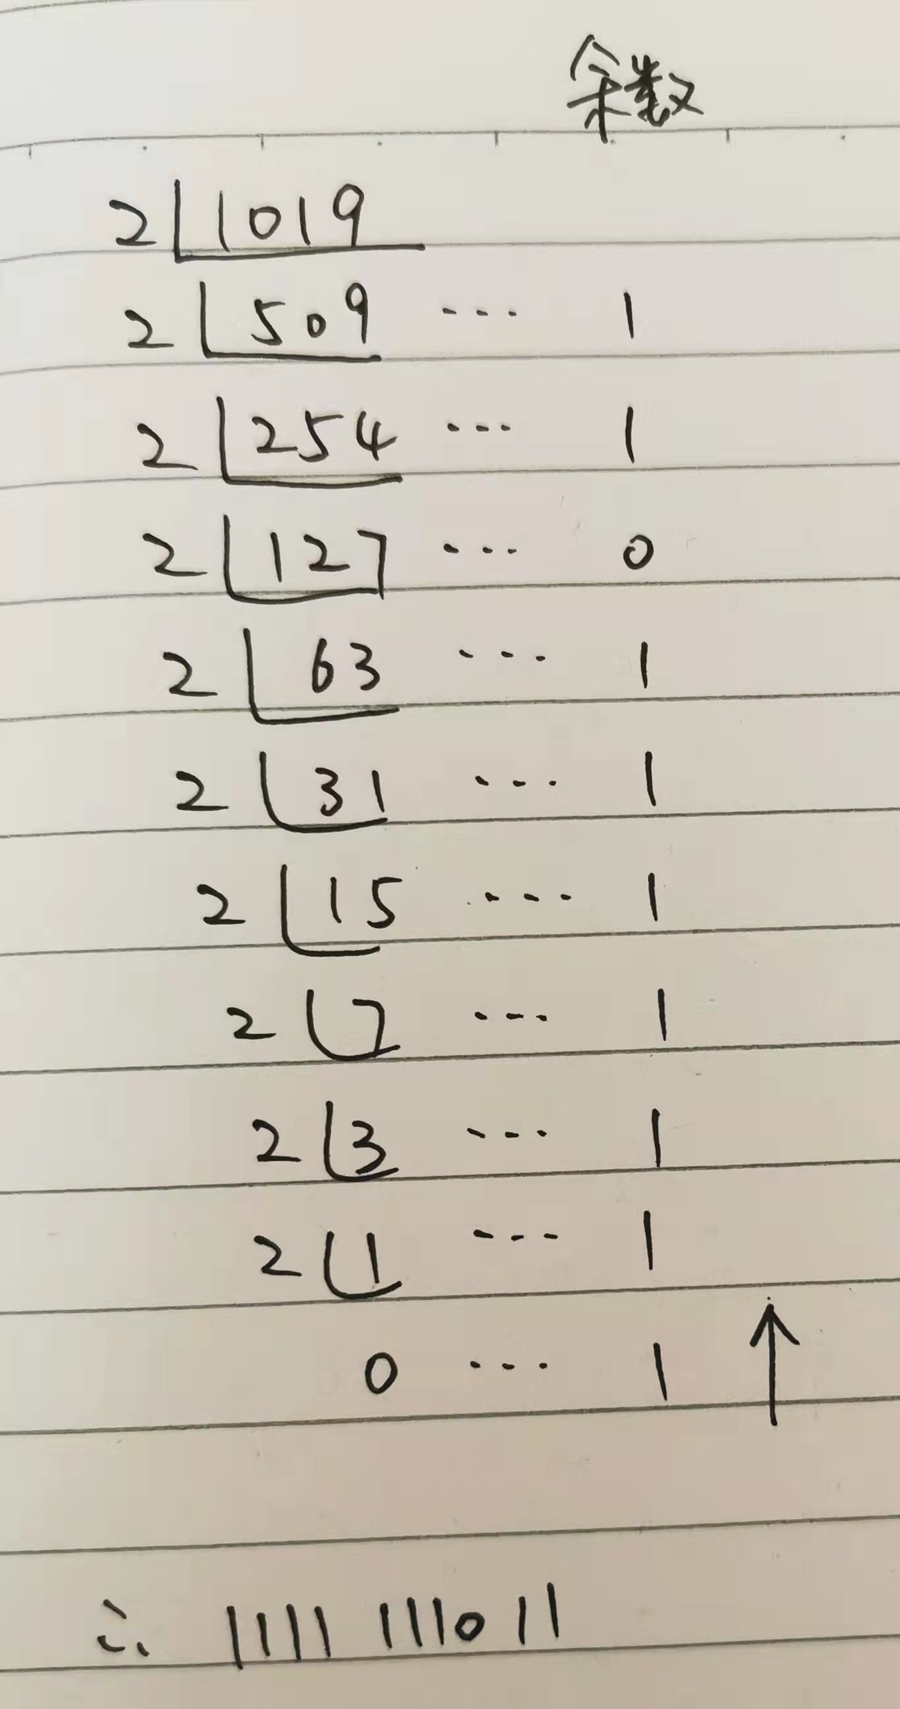 余数
2 1019
2 509 ... 1
2 254 ... 1
2 127 ... 0
2 63 ... 1
2 31 ... 1
2 15 .... 1
2 7 ... 1
2 3 ... 1
2 1 ... 1
0 ... 1 ↑
∴ 1111 111011